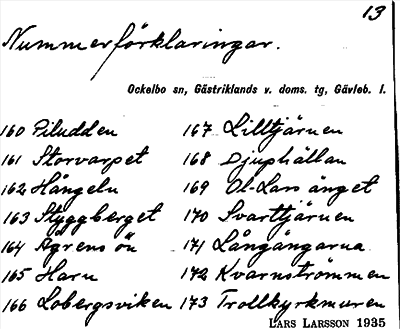 13
Nummerförklaringar.
Ockelbo sn, Gästriklands v. doms. tg, Gävleb. l.
160 Piludden
161 Storvarpet
162 Hångeln
163 Styggberget
164 Ågrens ön
165 Harn
166 Lobergsviken
167 Lilltjärnen
168 Djuphällan
169 Ol-Lars änget
170 Svarttjärnen
171 Långängarna
172 Kvarnströmmen
173 Trollkyrkmuren
LARS LARSSON 1935